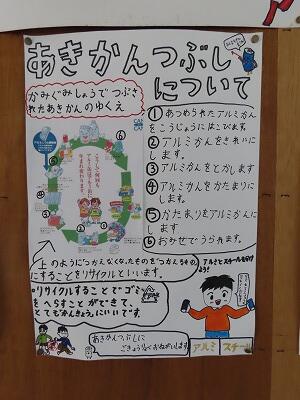 あきかんつぶし
について
かみぐみしょうでつぶさ
れたあきかんのゆくえ
①あつめられたアルミかん
をこうじょうにはこびます。
②アルミかんをきれいに
します。
③アルミかんをとかします
④アルミかんをかたまりに
します。
⑤かたまりをアルミかんに
します
⑥おみせでうられます。
上のようにつかえなくなったものをつかえるもの
にすることをリサイクルといいます。
アルミとスチールを分け
よう!
リサイクルすることでゴミ
をへらすことができて、
とてもかんきょうにいいです
あきかんつぶしに
ごきょう力おねがいします。
アルミ
スチール